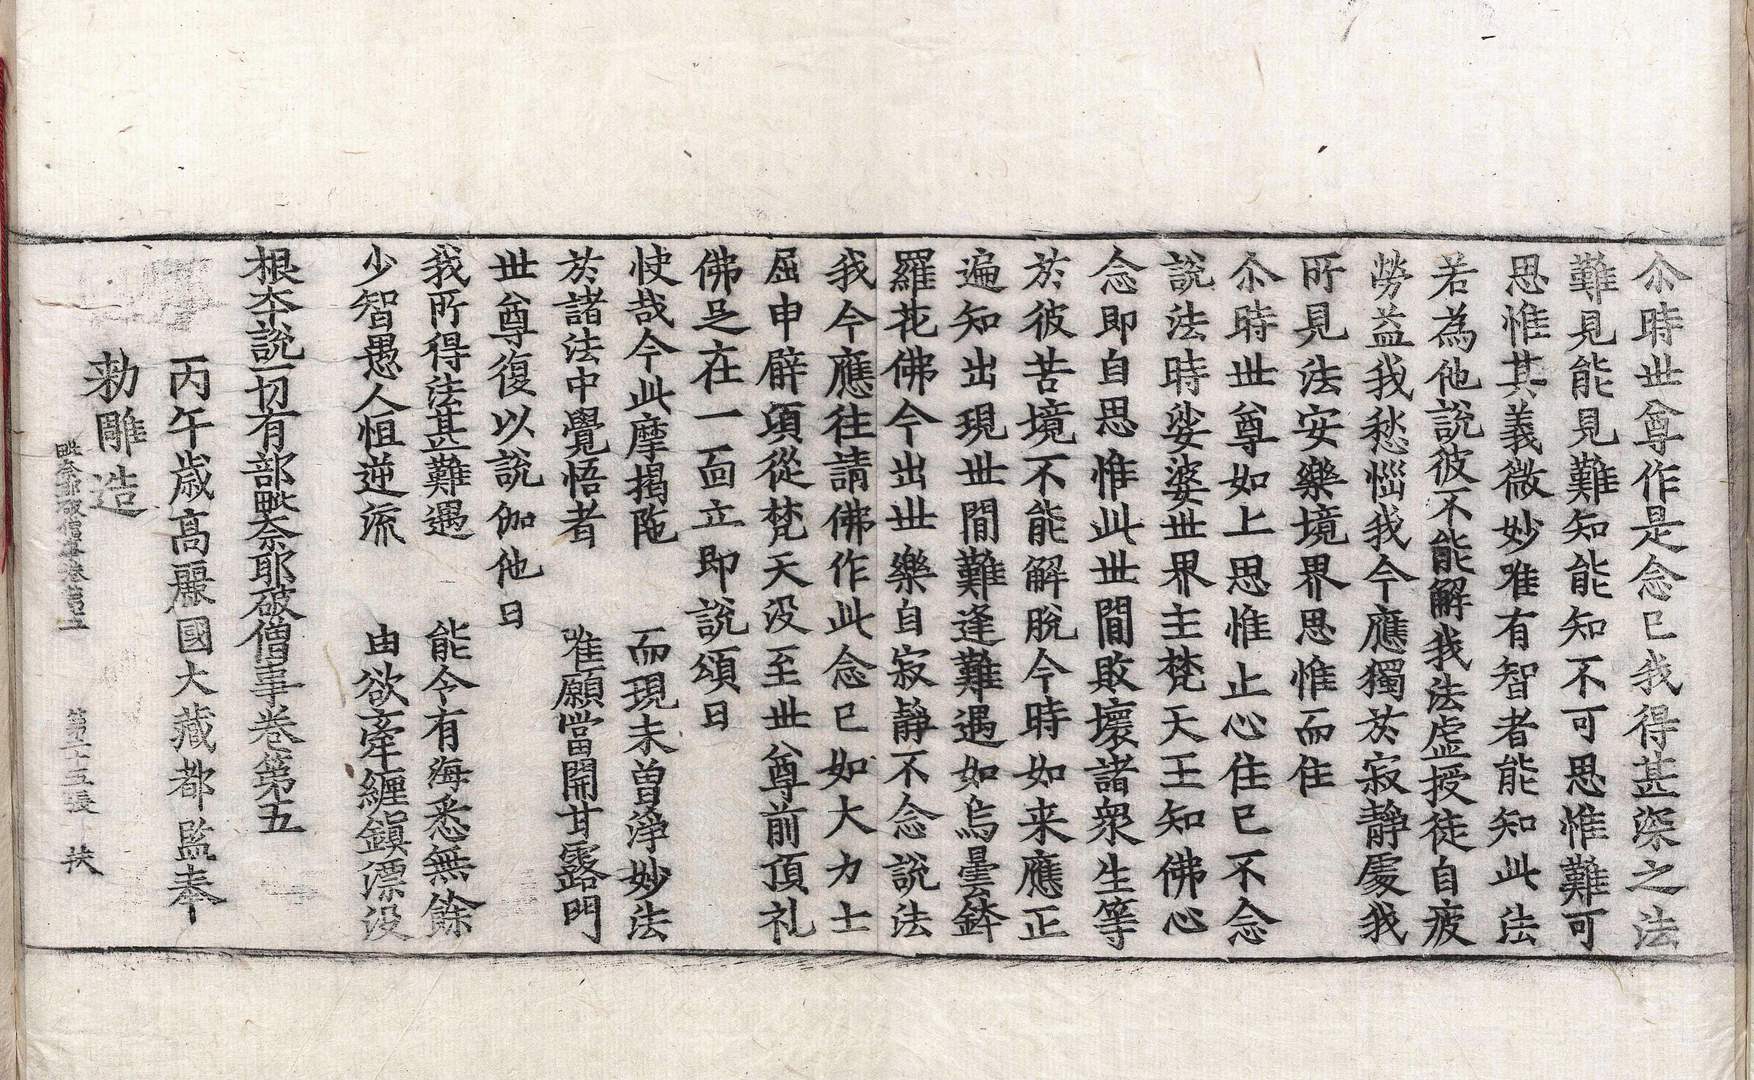 尒時世尊作是念已我得甚深之法
難見能見難知能知不可思惟難可
思惟其義微妙唯有智者能知此法
若為他說彼不能解我法虛授徒自疲
勞益我愁惱我今應獨於寂靜處我
所見法安樂境界思惟而住
尒時世尊如上思惟止心住已不念
說法時娑婆世界主梵天王知佛心
念即自思惟此世間敗壞諸衆生等
於彼苦境不能解脫今時如来應正
遍知出現世間難逢難遇如烏曇鉢
羅花佛今出世樂自寂靜不念說法
我今應往請佛作此念已如大力士
屈申臂頃從梵天没至世尊前頂礼
佛足在一面立即說頌曰
快哉今此摩揭陁　而現未曾淨妙法
於諸法中覺悟者　唯願當開甘露門
世尊復以說伽他曰
我所得法甚難遇　能令有海悉無餘
少智愚人恒逆流　由欲牽纏鎮漂没
根夲說一切有部毗奈耶破僧事卷第五
丙午歳高麗國大藏都監奉
勑雕造
毗奈耶破僧事卷第五　第二十五張　扶